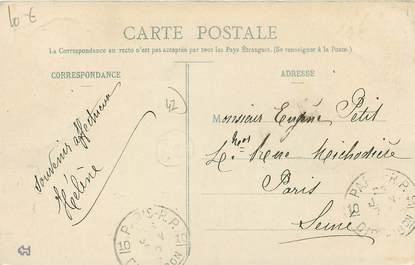 10 €
CARTE POSTALE
La Correspondance au recto n'est pas acceptée par tous les Pays Étrangers. (Se renseigner à la Poste.)
CORRESPONDANCE
ADRESSE
42
Souvenirs affectueux
Hélène
Monsieur Eugène Petit
Rue Michodière
Paris
Seine
PARIS-R.P.
10
10
PARIS-R.P.
10